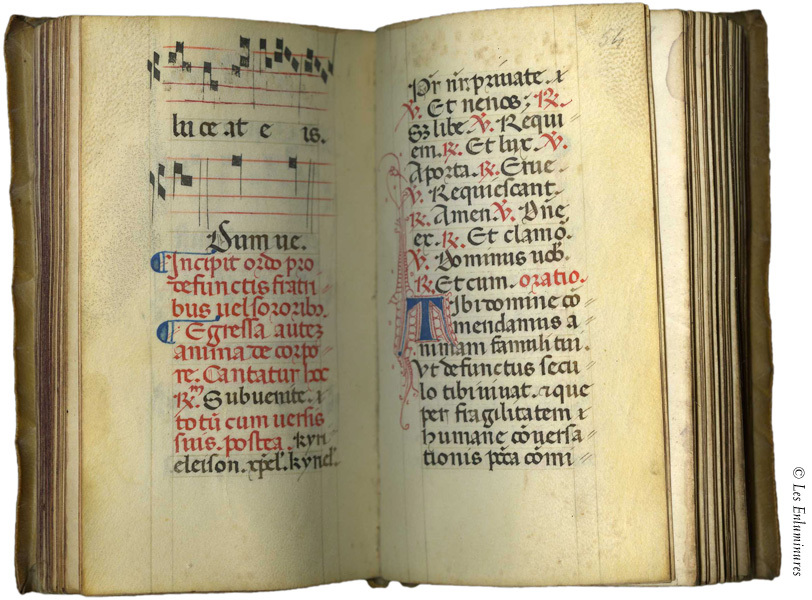 lu ce at e is.
Dum ue.
Incipit ordo pro
defunctis fratri
bus uel sororibꝰ.
Egressa autez
anima de corpo
re. Cantatur hoc
R̃. Subuenite. ⁊
totũ cum uersis
suis. postea. kyri
eleison. xp̃el'. kyriel'.
54
Pr̃ nr̃. priuate. ⁊
V̇. Et nenos; R̃.
Sꝫ libe V̇. Requi
em. R̃. Et lux. V̇.
Aporta. R̃. Erue.
V̇. Requiescant.
R̃. Amen V̇. Dñe
ex. R̃. Et clamõ.
V̇. Dominus uob̃.
R̃. Et cum. oratio.
Tibi domine cõ
mendamus a
nimam famuli tui.
Vt defunctus secu
lo tibi uiuat. ⁊ que
per fragilitatem ⁊
humane cõuersa
tionis pc̃ca cõmi
© Les Enluminures